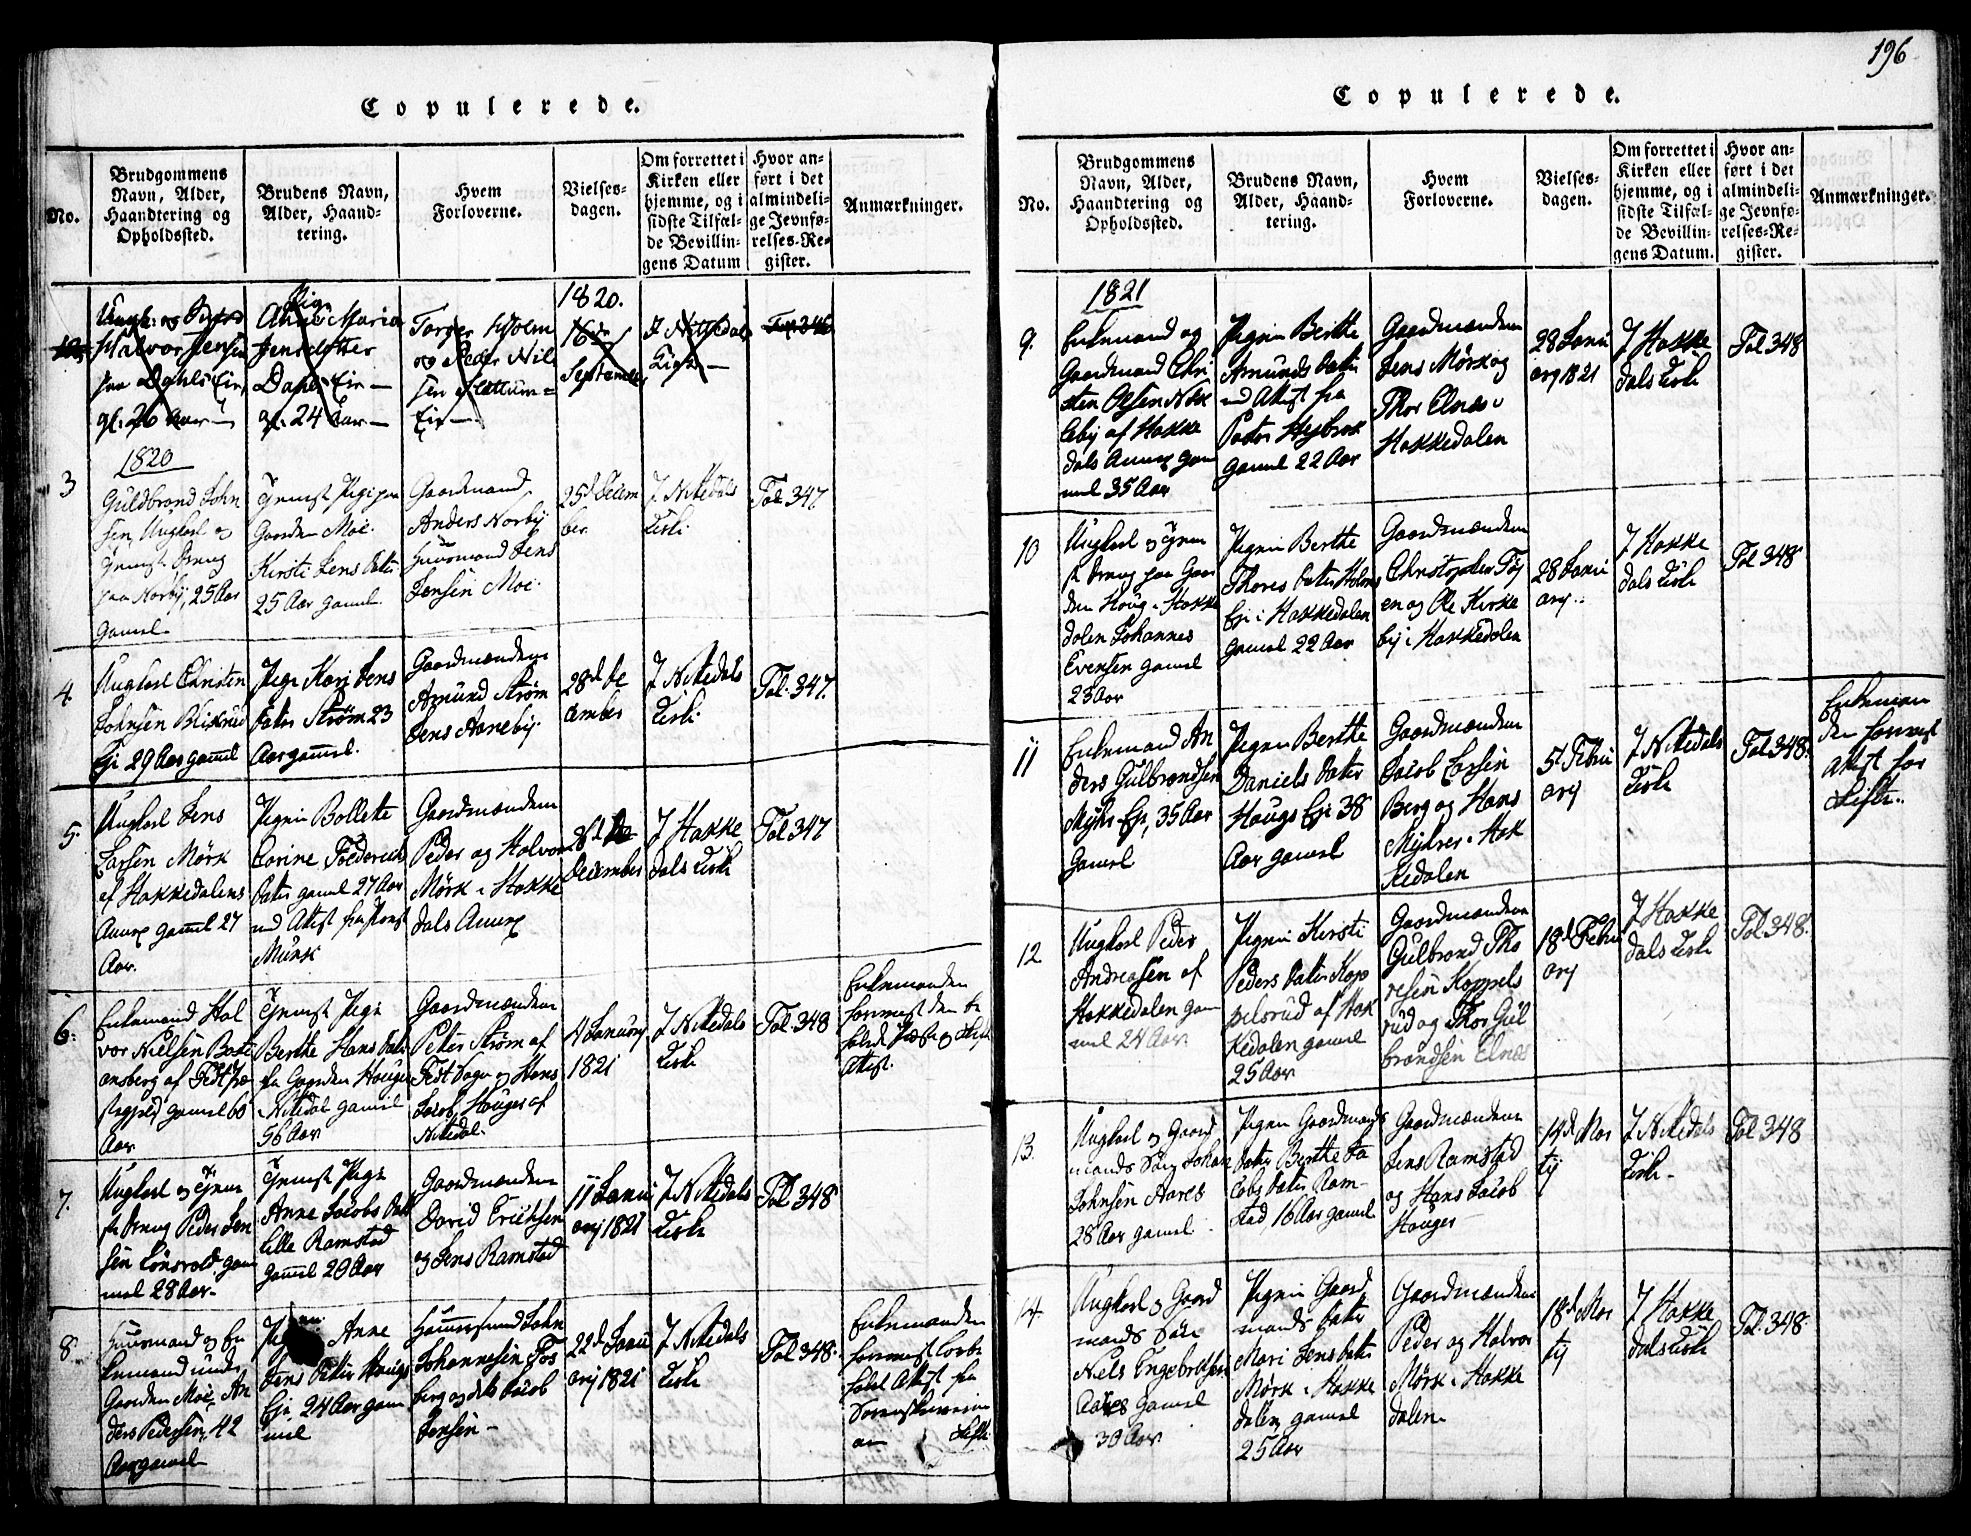 196
Copulerede.
No.
Brudgommens
Navn, Alder,
Haandtering og
Opholdssted.
Brudens Navn,
Alder, Haand-
tering.
Hvem
Forloverne.
Vielses-
dagen.
Om forrettet i
Kirken eller
hjemme, og i
sidste Tilfæl-
de Bevillin-
gens Datum
Hvor an-
ført i det
almindeli-
ge Jevnfø-
relses-Re-
gister.
Anmærkninger.
Halvor Jensen
paa Dahls Eie,
gl: 26 Aar
Pige
Anne Maria
Jensdatter
Dahls Eie
gl. 24 Aar
Torger Holm
og Peder Nil
sen
Eie
1820.
16de
September
I Nittedals
Kirke
Fol 346
1820
3
Guldbrand John
sen, Ungkarl og
tjenest Dreng
paa Norby, 25 Aar
gamel
Tjenest Pige paa
Gaarden Moe
Kirsti Jens Datter
25 Aar gamel.
Gaardmand
Anders Norby
Huusmand Jens
Jensen Moe.
25d Decem
ber.
I Nitedals
Kirke
Fol: 347
4
Ungkarl Christen
Johnsen
Eje 29 Aar gamel
Pige Kari Jens
Datter Strøm 23
Aar gamel.
Gaardmændene
Amund Strøm
Jens Aaneby
28d De
cember
I Nitedals
Kirke
Fol. 347
5
Ungkarl Jens
Larsen Mørk
af Hakkedalens
Annex gamel 27
Aar.
Pigen Bollette
Corine Frederichs
Datter gamel 27 Aar
med Attest fra Præst
Munk
Gaardmændene
Peder og Halvor
Mørk i Hakke
dals Annex
28d De
December
I Hakke
dals Kirke
Fol 347
6
Enkemand Hal
vor Nielsen
af Fedt Præ
stegjeld, gamel 60
Aar
Tjenest Pige
Berthe Hans Datter
fra Gaarden Houger
i Nitedal gamel
56 Aar
Gaardmændene
Peter Strøm af
og Hans
Jacob Houger af
Nitedal.
4 January
1821
I Nitedals
Kirke
Fol 348
Enkemanden
foreviist den be
falede
Attest.
7.
Ungkarl og tjene
ste Dreng Peder Jen
sen gam
mel 28 Aar
Tjenest Pige
Anne Jacobs Datter
Lille Ramstad
gamel 20 Aar
Gaardmændene
David Erichsen
og Jens Ramstad
11 Janu
ary 1821
I Nitedals
Kirke
Fol 348
8
Huusmand og En
kemand under
Gaarden Moe, An
ders Pedersen, 42
Aar gamel
Anne
Jens Datter Haugs
Eje, 24 Aar gam
mel
John
Johannesen Fos
berg og dito Jacob
Jensen
22d Janu
ary 1821
I Nitedals
Kirke
Fol 348
Enkemanden
foreviist
falet Attest fra
Sorenskriveren
om Skifte
Copulerede.
No.
Brudgommens
Navn, Alder,
Haandtering og
Opholdssted.
Brudens Navn,
Alder, Haand-
tering.
Hvem
Forloverne.
Vielses-
dagen.
Om forrettet i
Kirken eller
hjemme, og i
sidste Tilfæl-
de Bevillin-
gens Datum.
Hvor an-
ført i det
almindeli-
ge Jevnfø-
relses-Re-
gister.
Anmærkninger.
1821
9.
Enkemand og
Gaardmand Chri
sten Olsen
af Hakke
dals Annex gam
mel 35 Aar
Pigen Berthe
Amunds Datter
med Attest fra
Pastor
gamel 22 Aar
Gaardmændene
Jens Mørk og
Thor Elnæs i
Hakkedalen
28 Janu
ary 1821
I Hakke
dals Kirke
Fol 348
10
Ungkarl og tjene
ste Dreng paa Gaar
den Houg i Hakke
dalen Johannes
Evensen gamel
23 Aar
Pigen Berthe
Thores Datter
Eje i Hakkedalen
gamel 22 Aar
Gaardmændene
Christopher Tøy
en og Ole Kirke
by i Hakkedalen
28 Janu
ary.
I Hakke
dals Kirke
Fol 348
11
Enkemand An
ders Gulbrandsen
Myhrs Eje, 35 Aar
gamel
Pigen Berthe
Daniels Datter
Haugs Eje 38
Aar gamel
Gaardmændene
Jacob Larsen
Berg og Hans
Myhrer i Hak
kedalen
5t Febru
ary
I Nitedals
Kirke
Fol 348.
Enkeman
den foreviist
Attest for
Skifte.
12
Ungkarl Peder
Andreasen af
Hakkedalen gam
mel 24 Aar
Pigen Kirsti
Peders Datter Kop
pelsrud af Hak
kedalen gamel
25 Aar
Gaardmændene
Gulbrand Tho
resen Koppels
rud og Thor Gul
brandsen Elnæs
18d Febru
ary
I Hakke
dals Kirke
Fol 348.
13.
Ungkarl og Gaard
mands Søn Johan
Johnsen Aares
28 Aar gamel
Pigen Gaardmands
Datter Berthe Ja
cobs Datter Ram-
stad 16 Aar gamel
Gaardmændene
Jens Ramstad
og Hans Jacob
Houger
14d Mar
ty
I Nitedals
Kirke
Fol 348
14.
Ungkarl og Gaard
mands Søn
Niels Engebretsen
Aares gamel
30 Aar
Pigen Gaard
mands Datter
Mari Jens Datter
Mørk i Hakke
dalen gamel
25 Aar
Gaardmændene
Peder og Halvor
Mørk i Hakke
dalen
18d Mar
ty
I Hakke
dals Kirke
Fol. 348